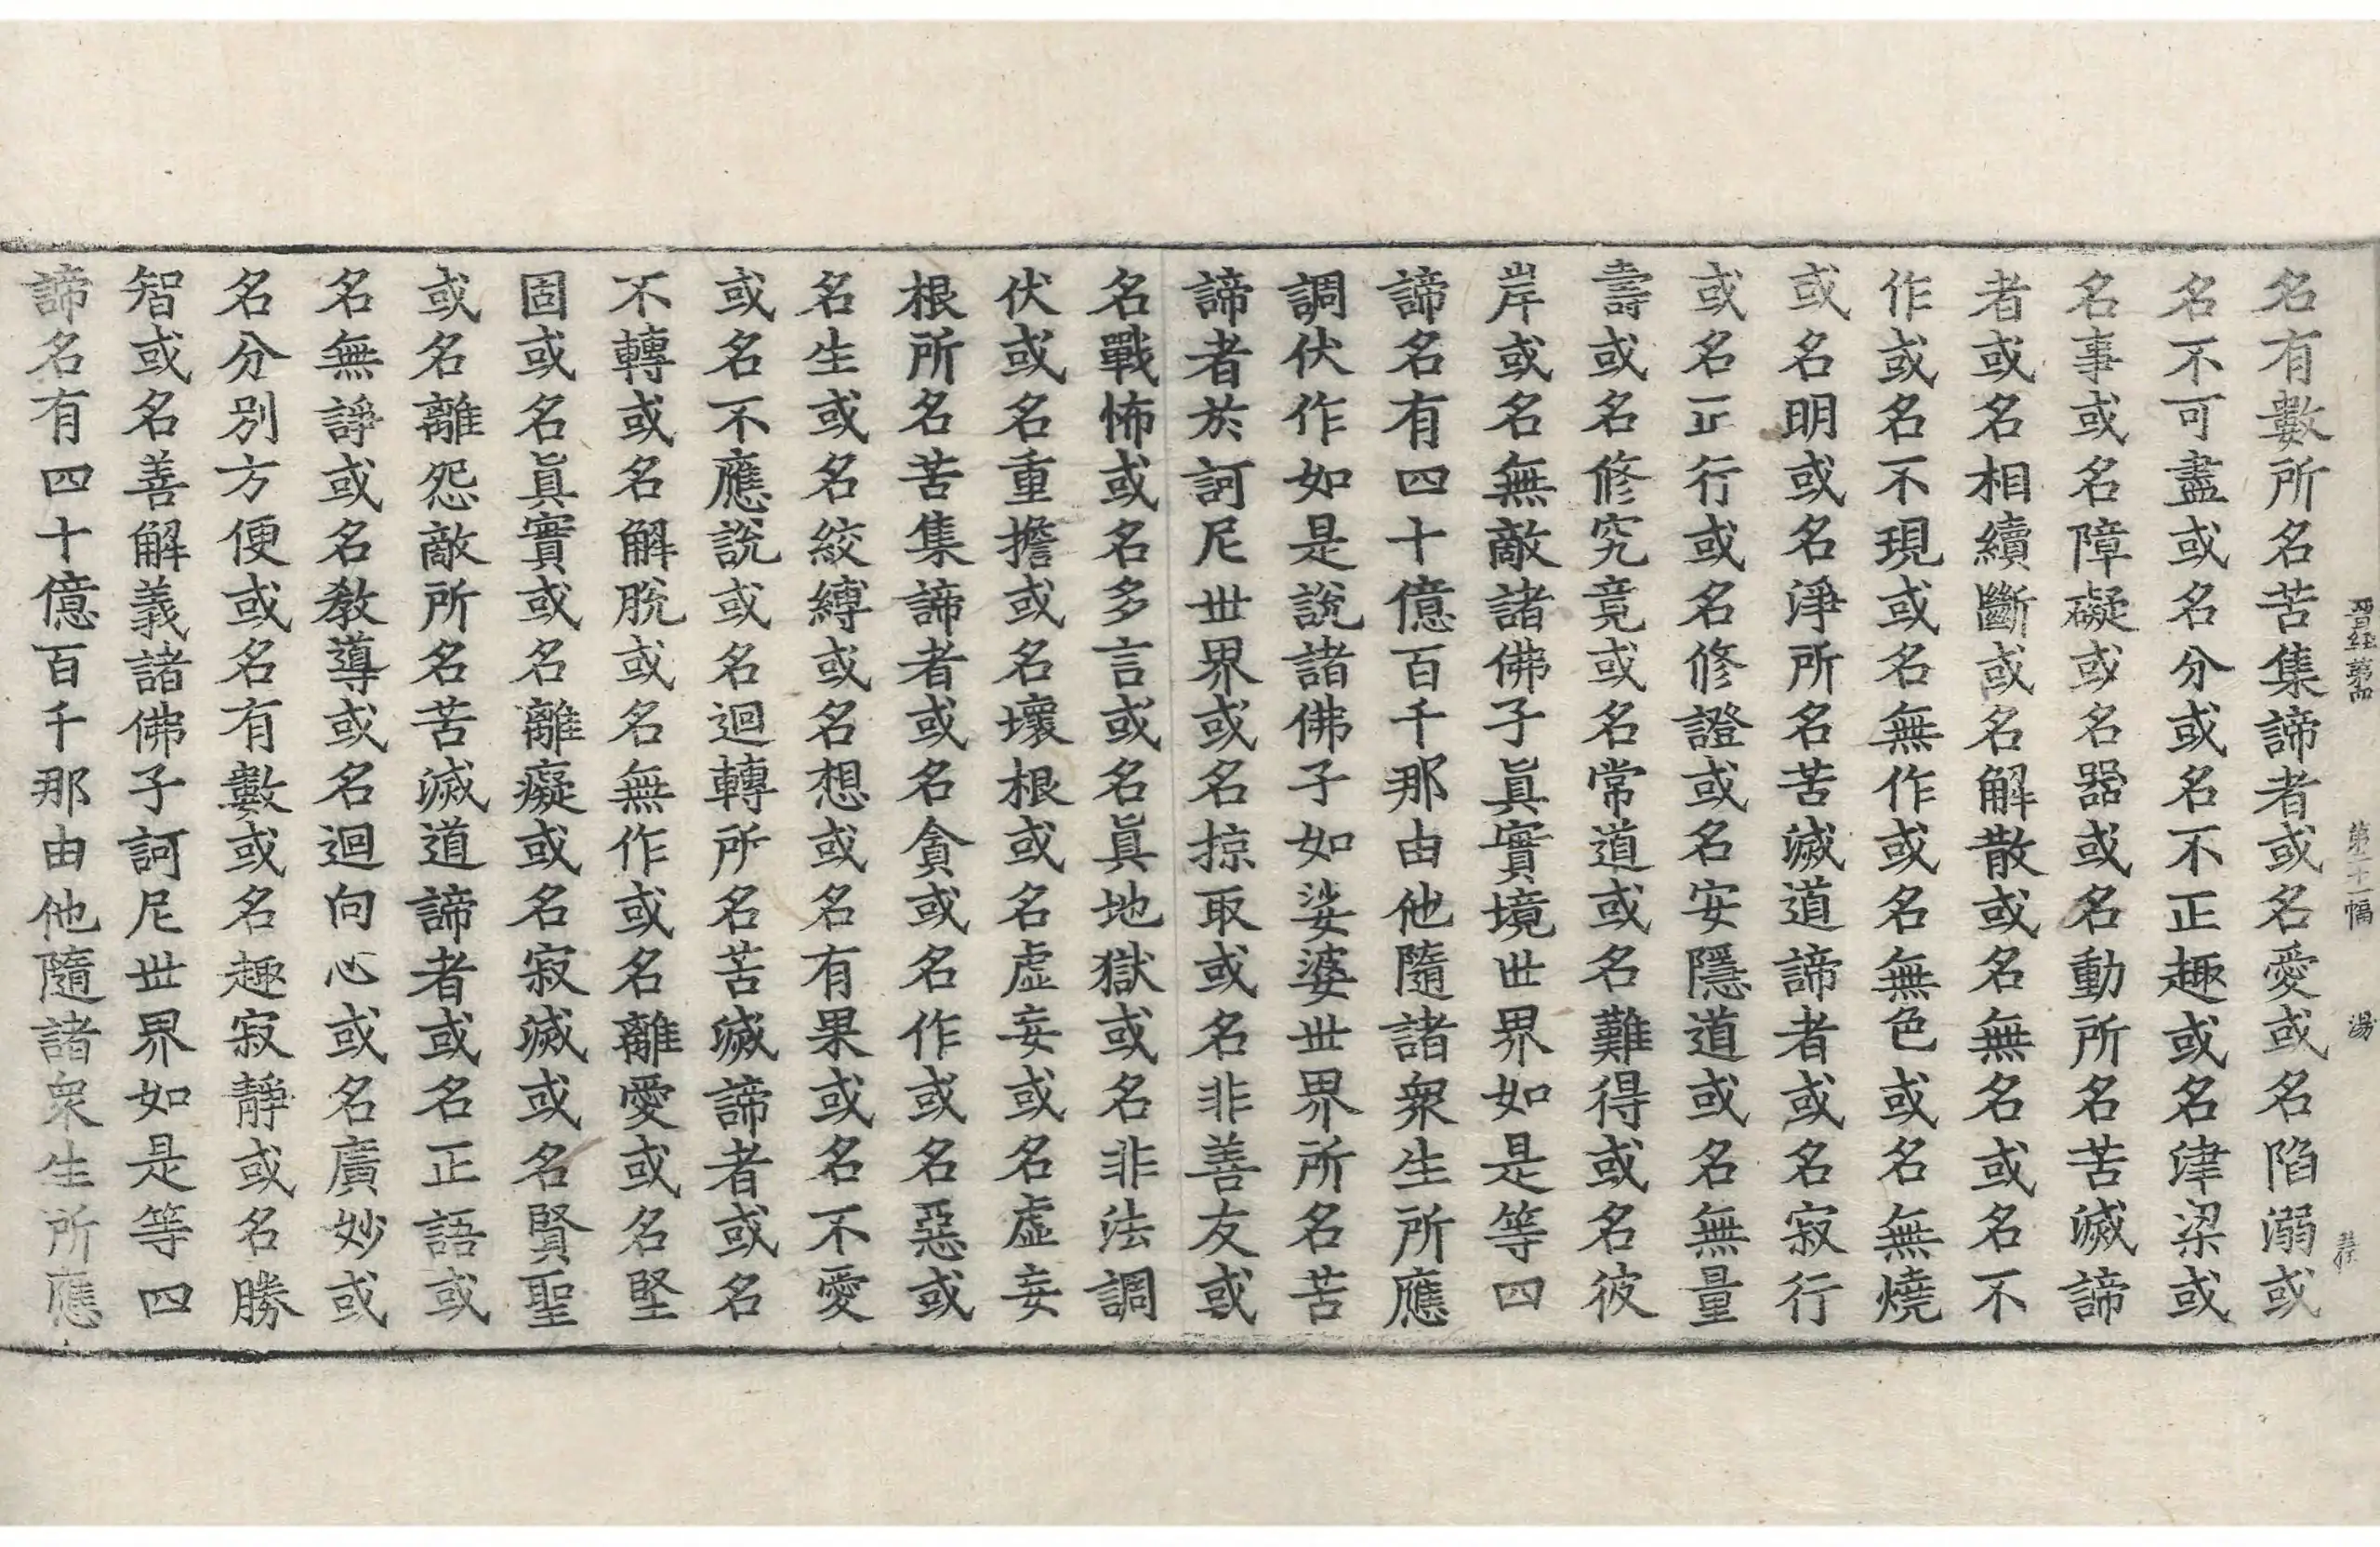 晋經第四 第十一幅 湯
名有數所名苦集諦者或名愛或名陷溺或
名不可盡或名分或名不正趣或名津梁或
名事或名障礙或名器或名動所名苦滅諦
者或名相續斷或名解散或名無名或名不
作或名不現或名無作或名無色或名無燒
或名明或名淨所名苦滅道諦者或名寂行
或名正行或名修證或名安隱道或名無量
壽或名修究竟或名常道或名難得或名彼
岸或名無敵諸佛子眞實境世界如是等四
諦名有四十億百千那由他隨諸衆生所應
調伏作如是說諸佛子如娑婆世界所名苦
諦者於訶尼世界或名掠取或名非善友或
名戰怖或名多言或名眞地獄或名非法調
伏或名重擔或名壞根或名虛妄或名虛妄
根所名苦集諦者或名貪或名作或名惡或
名生或名絞縛或名想或名有果或名不愛
或名不應說或名迴轉所名苦滅諦者或名
不轉或名解脫或名無作或名離愛或名堅
固或名眞實或名離癡或名寂滅或名賢聖
或名離怨敵所名苦滅道諦者或名正語或
名無諍或名教導或名迴向心或名廣妙或
名分別方便或名有數或名趣寂靜或名勝
智或名善解義諸佛子訶尼世界如是等四
諦名有四十億百千那由他隨諸衆生所應